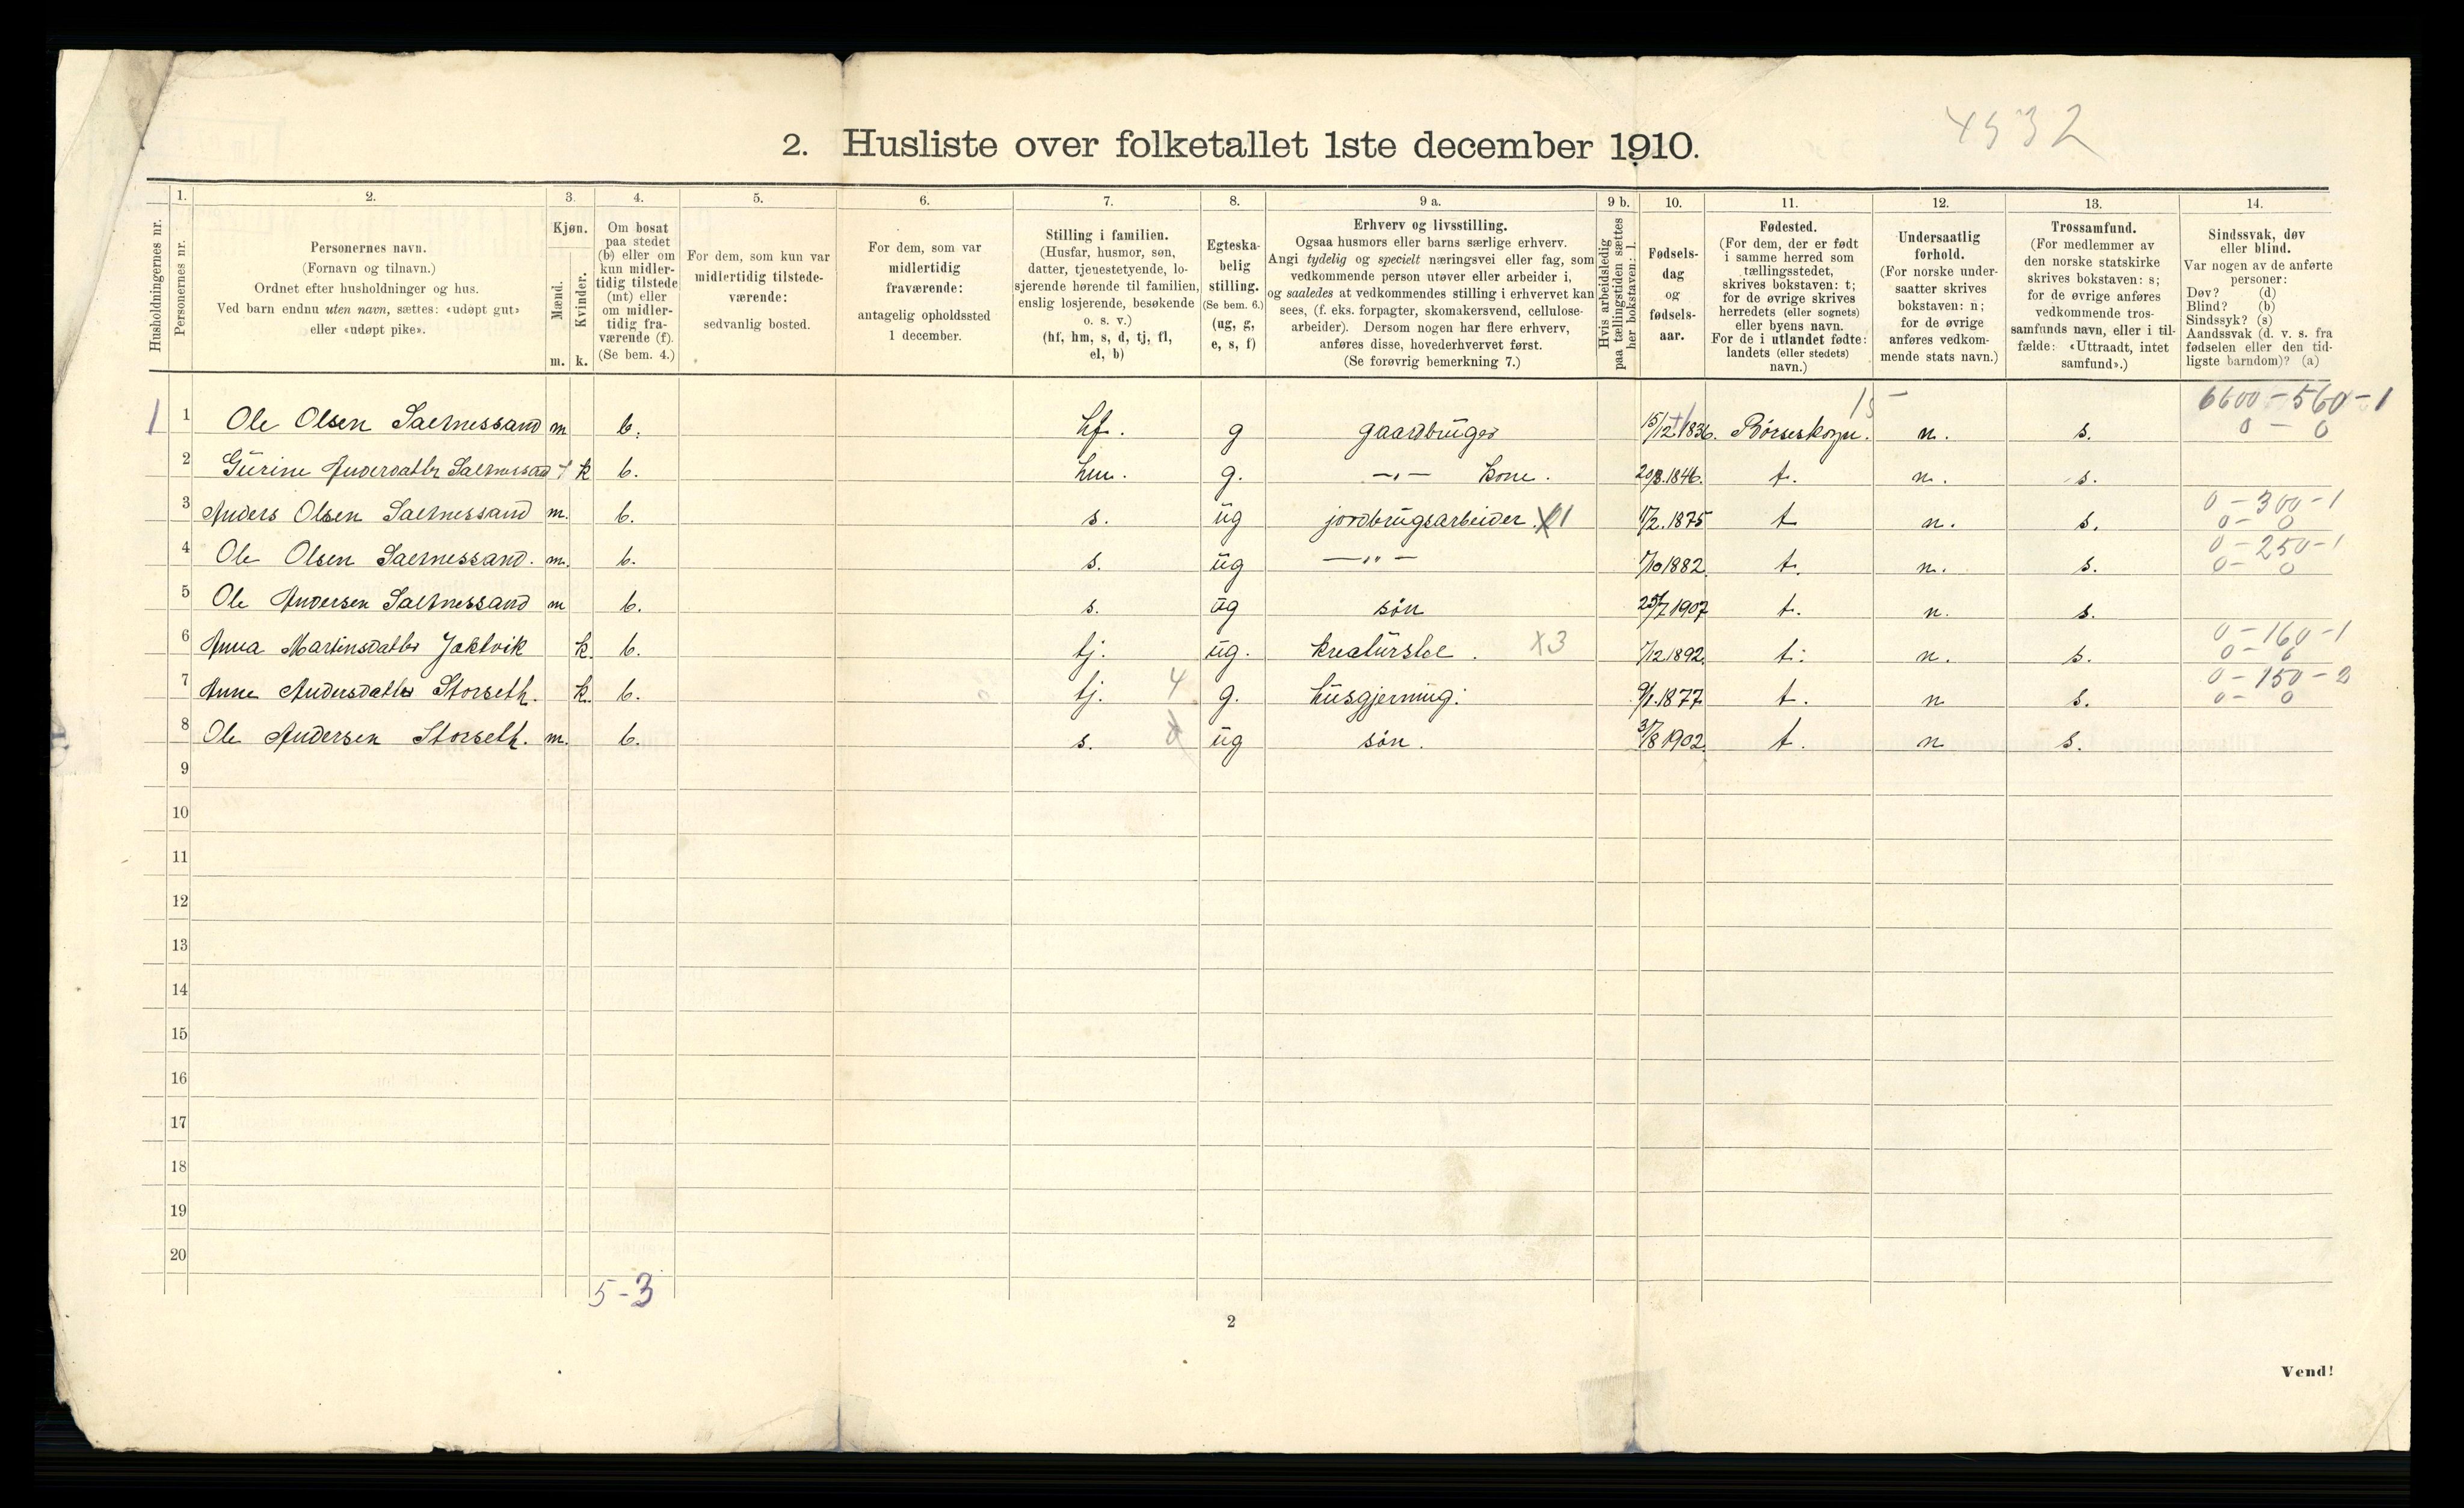 4532
2. Husliste over folketallet 1ste december 1910.
Husholdningernes nr.
1.
Personernes nr.
2.
Personernes navn.
(Fornavn og tilnavn.)
Ordnet efter husholdninger og hus.
Ved barn endnu uten navn, sættes: «udøpt gut»
eller «udøpt pike».
3.
Kjøn.
Mænd.
Kvinder.
m. k.
4.
Om bosat
paa stedet
(b) eller om
kun midler-
tidig tilstede
(mt) eller
om midler-
tidig fra-
værende (f).
(Se bem. 4.)
5.
For dem, som kun var
midlertidig tilstede-
værende:
sedvanlig bosted.
6.
For dem, som var
midlertidig
fraværende:
antagelig opholdssted
1 december.
7.
Stilling i familien.
(Husfar, husmor, søn,
datter, tjenestetyende, lo-
sjerende hørende til familien,
enslig losjerende, besøkende
o. s. v.)
(hf, hm, s, d, tj, fl,
el, b)
8.
Egteska-
belig
stilling.
(Se bem. 6.)
(ug, g,
e, s, f)
9 a.
Erhverv og livsstilling.
Ogsaa husmors eller barns særlige erhverv.
Angi tydelig og specielt næringsvei eller fag, som
vedkommende person utøver eller arbeider i,
og saaledes at vedkommendes stilling i erhvervet kan
sees, (f. eks. forpagter, skomakersvend, cellulose-
arbeider). Dersom nogen har flere erhverv,
anføres disse, hovederhvervet først.
(Se forøvrig bemerkning 7.)
9 b.
Hvis arbeidsledig
paa tællingstiden sættes
her bokstaven: l.
10.
Fødsels-
dag
og
fødsels-
aar.
11.
Fødested.
(For dem, der er født
i samme herred som
tællingsstedet,
skrives bokstaven: t;
for de øvrige skrives
herredets (eller sognets)
eller byens navn.
For de i utlandet fødte:
landets (eller stedets)
navn.)
12.
Undersaatlig
forhold.
(For norske under-
saatter skrives
bokstaven: n;
for de øvrige
anføres vedkom-
mende stats navn.)
13.
Trossamfund.
(For medlemmer av
den norske statskirke
skrives bokstaven: s;
for de øvrige anføres
vedkommende tros-
samfunds navn, eller i til-
fælde: «Uttraadt, intet
samfund».)
14.
Sindssvak, døv
eller blind.
Var nogen av de anførte
personer:
Døv? (d)
Blind? (b)
Sindssyk? (s)
Aandssvak (d. v. s. fra
fødselen eller den tid-
ligste barndom)? (a)
15 6600-560-1
1 1 Ole Olsen Saltnessand m b. hf. g gaardbruger 15/12 1836. Børseskogn. n. s. 0 - 0
2 Gurine Andersdatter Saltnessand k b. hm. g. -"- kone. 20/8.1846. t. n. s.
0-300-1
3 Anders Olsen Saltnessand m. b. s. ug jordbrugsarbeider. X1 17/2.1875 t n. s. 0- 0
0-250-1
4 Ole Olsen Saltnessand. m. b. s. ug -"- 7/10 1882. t. n. s. 0- 0
5 Ole Andersen Saltnessand m b. s. ug søn 25/7 1907 t. n. s.
0-160-1
6 Anna Martinsdatter Jaktvik k. b. tj. ug. kreaturstel. X3 7/12 1892. t. n. s. 0- 0
0-150-2
7 Anne Andersdatter Storseth. k. b. tj. 4 g. husgjerning. 9/1.1877 t. n s. 0- 0
8 Ole Andersen Storseth. m. b. s. ug søn. 31/8 1902. t. n s.
9
10
11
12
13
14
15
16
17
18
19
20
5-3
2
Vend!